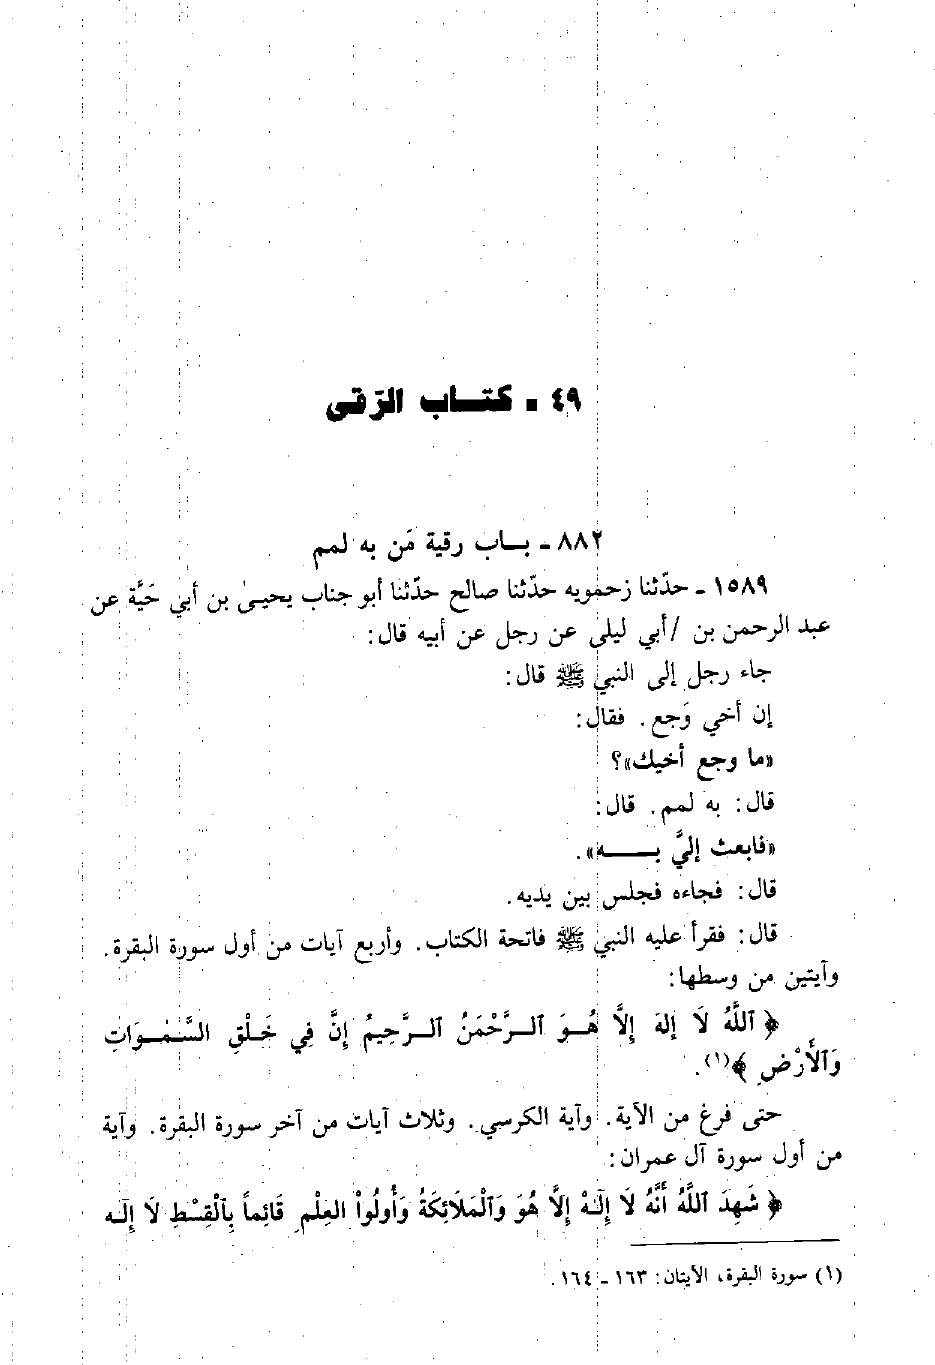 ٤٩ - كتاب الرّقى
٨٨٢ - باب رقية مَن به لمم
١٥٨٩ - حدّثنا زحمويه حدّثنا صالح حدّثنا أبو جناب يحيىٰ بن أبي حَيَّة عن
عبد الرحمن بن / أبي ليلى عن رجل عن أبيه قال:
جاء رجل إلى النبي ﷺ قال:
إن أخي وَجع. فقال:
«ما وجع أخيك»؟
قال: به لمم. قال:
«فابعث إليَّ بـــه».
قال: فجاءه فجلس بين يديه.
قال: فقرأ عليه النبي ﷺ فاتحة الكتاب. وأربع آيات من أول سورة البقرة.
وآيتين من وسطها:
﴿ ٱللَّهُ لَا إِلهَ إِلَّا هُـوَ ٱلـرَّحْمَنُ ٱلـرَّحِيمُ إِنَّ فِي خَـلْقِ السَّـمٰـوَاتِ
وَٱلأَرْضِ ﴾(١).
حتى فرغ من الآية. وآية الكرسي. وثلاث آيات من آخر سورة البقرة. وآية
من أول سورة آل عمران:
﴿ شَهِدَ ٱللَّهُ أَنَّهُ لَا إِلَـٰهَ إِلَّا هُوَ وَٱلْمَلَائِكَةُ وَأُولُواْ العِلْمِ قَائِماً بِٱلْقِسْطِ لَا إِلَـٰه
(١) سورة البقرة، الآيتان: ١٦٣ - ١٦٤.